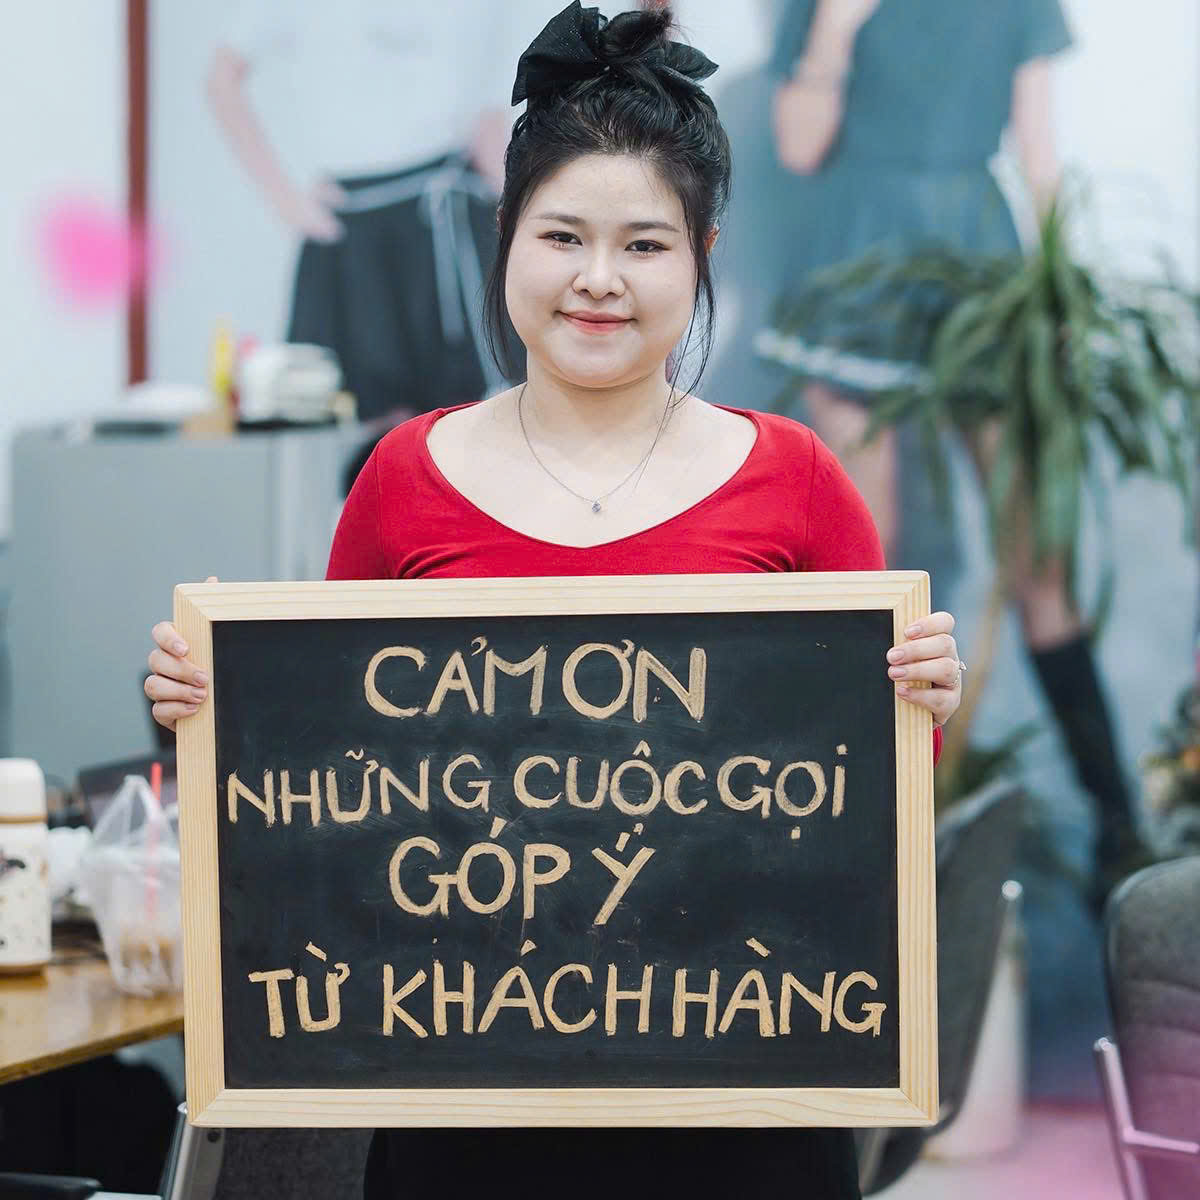 CẢM ƠN
NHỮNG CUỘC GỌi
GÓP Ý
TỪ KHÁCH HÀNG